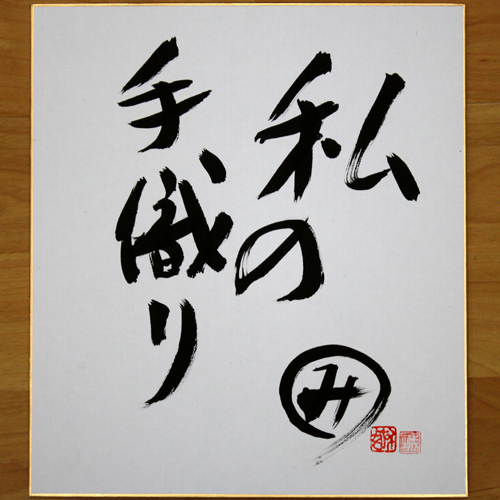 私の
手織り
み